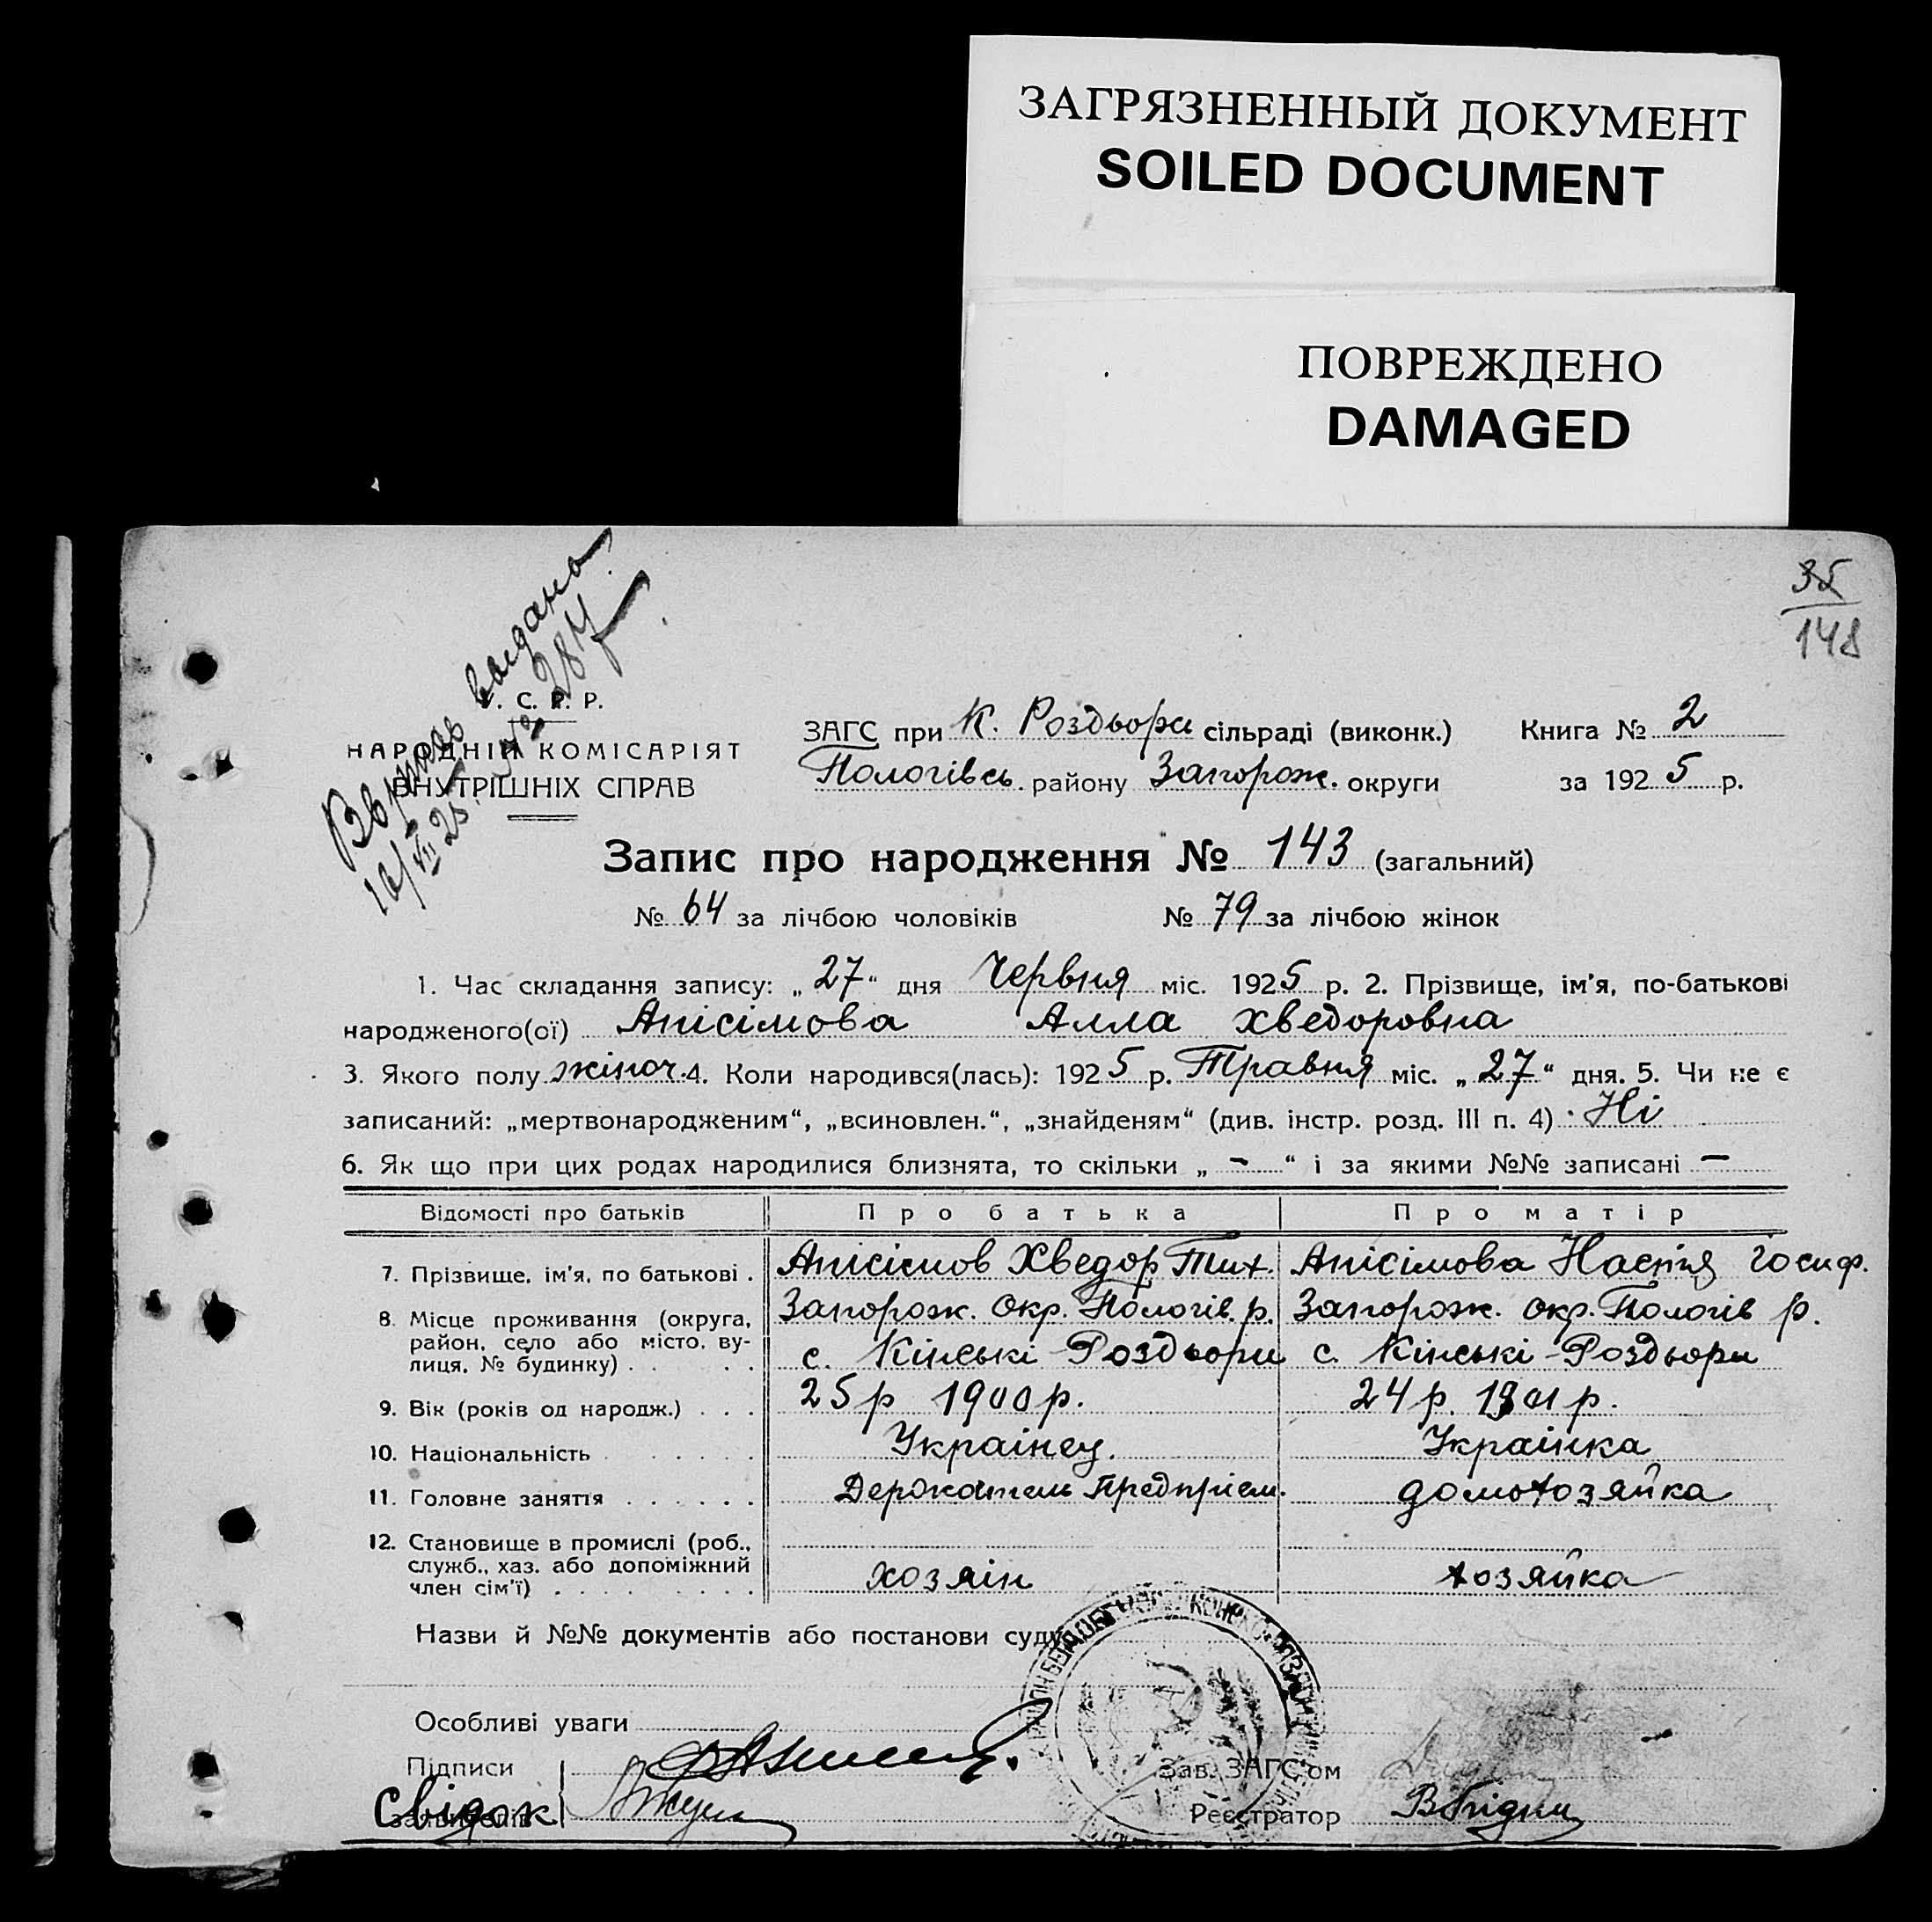 ЗАГРЯЗНЕННЫЙ ДОКУМЕНТ
SOILED DOCUMENT
ПОВРЕЖДЕНО
DAMAGED
35
148
выдана
№ 284
10/VII 25
У. С. Р. Р.
НАРОДНІЙ КОМІСАРІЯТ
ВНУТРІШНІХ СПРАВ
ЗАГС при К. Роздори сільраді (виконк.) Книга № 2
Пологівсь. району Запорож. округи за 1925 р.
Запис про народження № 143 (загальний)
№ 64 за лічбою чоловіків № 79 за лічбою жінок
1. Час складання запису: „27“ дня Червня міс. 1925 р. 2. Прізвище, ім'я, по-батькові
народженого(ої) Анісімова Алла Хведоровна
3. Якого полу жіноч. 4. Коли народився(лась): 1925 р. Травня міс. „27“ дня. 5. Чи не є
записаний: „мертвонародженим“, „всиновлен.“, „знайденям“ (див. інстр. розд. III п. 4) Ні
6. Як що при цих родах народилися близнята, то скільки „ - “ і за якими №№ записані —
Відомості про батьків Про батька Про матір
7. Прізвище, ім'я, по батькові . Анісімов Хведор Тих. Анісімова Настя Іосиф.
8. Місце проживання (округа, район, село або місто, вулиця, № будинку) . . . . Запорож. Окр. Пологів. р. Запорож. окр. Пологів р.
с. Кінські-Роздори с. Кінські-Роздори
9. Вік (років од народж.) . . . 25 р 1900 р. 24 р. 1901 р.
10. Національність . . . . . . Украінец. Украінка
11. Головне заняття . . . . . . Держатель Предприєм. домохозяйка
12. Становище в промислі (роб., служб., хаз. або допоміжний член сім'ї) . . . . . . . . . хозяін хозяйка
Назви й №№ документів або постанови суду
Особливі уваги
Підписи
заявителів
Свідок
Зав. ЗАГС'ом
Реєстратор